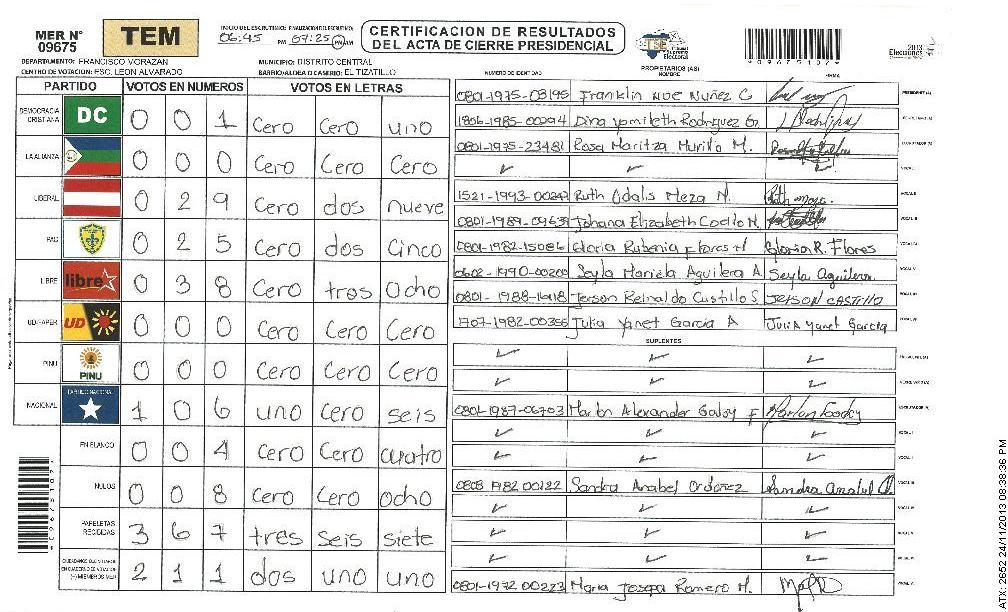 MER N° 09675
TEM
INICIO DEL ESCRUTINIO: FINALIZACION DEL ESCRUTINIO:
06:45 PM 07:25 PM AM
CERTIFICACION DE RESULTADOS
DEL ACTA DE CIERRE PRESIDENCIAL
TSE Tribunal Supremo Electoral
Elecciones 2013
DEPARTAMENTO: FRANCISCO MORAZAN
MUNICIPIO: DISTRITO CENTRAL
CENTRO DE VOTACION: ESC. LEON ALVARADO
BARRIO/ALDEA O CASERIO: EL TIZATILLO
NUMERO DE IDENTIDAD
PROPIETARIOS (AS)
NOMBRE
FIRMA
PARTIDO VOTOS EN NUMEROS VOTOS EN LETRAS
DEMOCRACIA CRISTIANA DC 0 0 1 Cero Cero uno
LA ALIANZA 0 0 0 Cero Cero Cero
LIBERAL 0 2 9 Cero dos nueve
PAC 0 2 5 Cero dos Cinco
LIBRE libre 0 3 8 Cero tres Ocho
UD/FAPER UD 0 0 0 Cero Cero Cero
PINU PINU 0 0 0 Cero Cero Cero
NACIONAL PARTIDO NACIONAL 1 0 6 uno Cero seis
EN BLANCO 0 0 4 Cero Cero cuatro
NULOS 0 0 8 Cero Cero ocho
PAPELETAS RECIBIDAS 3 6 7 tres seis siete
2 1 1 dos uno uno
0801-1975-03195 Franklin Noe Nuñez C PRESIDENTE (A)
1806-1985-00294 Dina Yamileth Rodriguez G.
0801-1975-23481 Rosa Maritza Murillo M.
VOCAL I
1521-1993-00247 Ruth Odalis Meza M. Ruth meza. VOCAL II
0801-1989-09639 Johana Elizabeth Coello N. VOCAL III
0801-1982-15086 Gloria Rubenia Flores H Gloria R. Flores
0602-1990-00200 Seyla Mariela Aguilera A. Seyla Aguilera
0801-1988-16918 Jerson Reinaldo Custillo S. JERSON CASTILLO
1707-1982-00356 Julia Yanet Garcia A Julia Yanet Garcia
SUPLENTES
0801-1987-06703 Marlon Alexander Godoy F Marlon Godoy
0808 1982 00122 Sandra Anabel Ordoñez Sandra Anabel O.
0801-1972 00223 Maria Josepa Romero M.
*09675107*
ATX: 2652 24/11/2013 08:38:36 PM